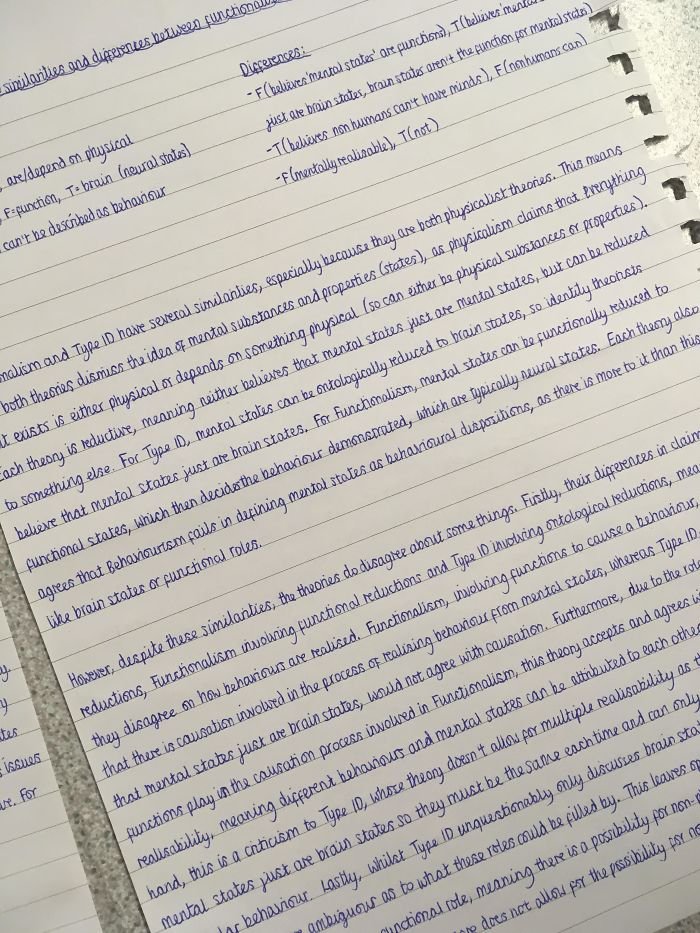 similarities and differences between functional
Differences:
- F (believes 'mental states' are functions), T (believes 'mental
just are brain states, brain states aren't the function for mental state)
- T (believes non humans can't have minds), F (non humans can)
- F (mentally realisable), T (not)
are/depend on physical
F = function, T = brain (neural states)
can't be described as behaviour
nalism and Type ID have several similarities, especially because they are both physicalist theories. This means
both theories dismiss the idea of mental substances and properties (states), as physicalism claims that everything
t exists is either physical or depends on something physical (so can either be physical substances or properties).
Each theory is reductive, meaning neither believes that mental states just are mental states, but can be reduced
to something else. For Type ID, mental states can be ontologically reduced to brain states, so identity theorists
believe that mental states just are brain states. For Functionalism, mental states can be functionally reduced to
functional states, which then decides the behaviour demonstrated, which are typically neural states. Each theory also
agrees that Behaviourism fails in defining mental states as behavioural dispositions, as there is more to it than this
like brain states or functional roles.
However, despite these similarities, the theories do disagree about some things. Firstly, their differences in claim
reductions, Functionalism involving functional reductions and Type ID involving ontological reductions, mea
they disagree on how behaviours are realised. Functionalism, involving functions to cause a behaviour,
that there is causation involved in the process of realising behaviour from mental states, whereas Type ID
that mental states just are brain states, would not agree with causation. Furthermore, due to the role
functions play in the causation process involved in Functionalism, this theory accepts and agrees w
realisability, meaning different behaviours and mental states can be attributed to each other
hand, this is a criticism to Type ID, whose theory doesn't allow for multiple realisability as th
mental states just are brain states so they must be the same each time and can only
lar behaviour. Lastly, whilst Type ID unquestionably only discusses brain sta
ambiguous as to what these roles could be filled by. This leaves op
unctional role, meaning there is a possibility for non
does not allow for the possibility for
y
y
tes
issues
ve. For